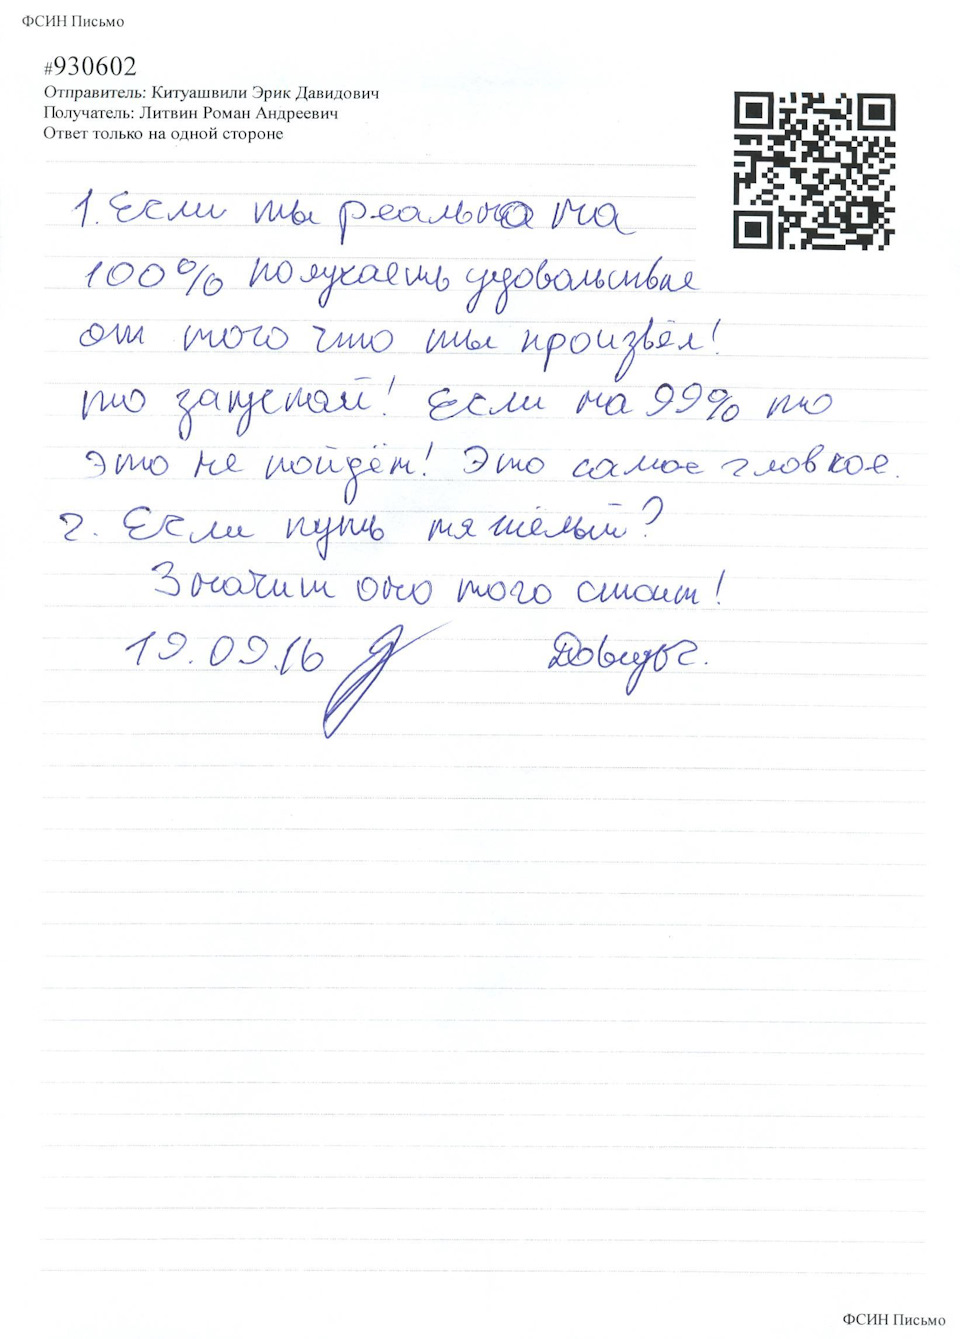 ФСИН Письмо
#930602
Отправитель: Китуашвили Эрик Давидович
Получатель: Литвин Роман Андреевич
Ответ только на одной стороне
1. Если ты реально на
100% получаешь удовольствие
от того что ты произвёл!
то запускай! Если на 99% то
это не пойдёт! Это самое главное.
2. Если путь тяжёлый?
Значит оно того стоит!
19.09.16 Давидыч.
ФСИН Письмо